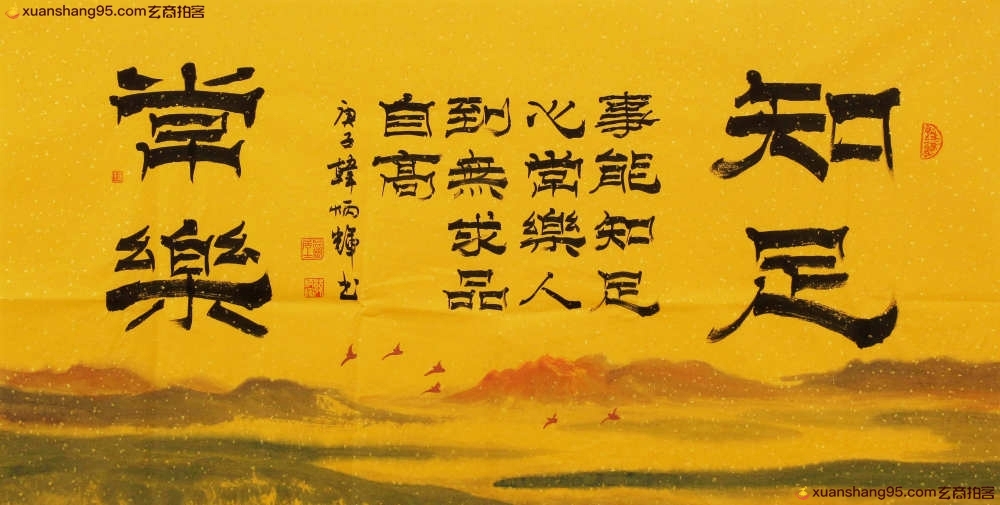 xuanshang95.com玄商拍客
知足
事能知足
心常樂人
到無求品
自高
庚子韓炳輝書
常樂
xuanshang95.com玄商拍客